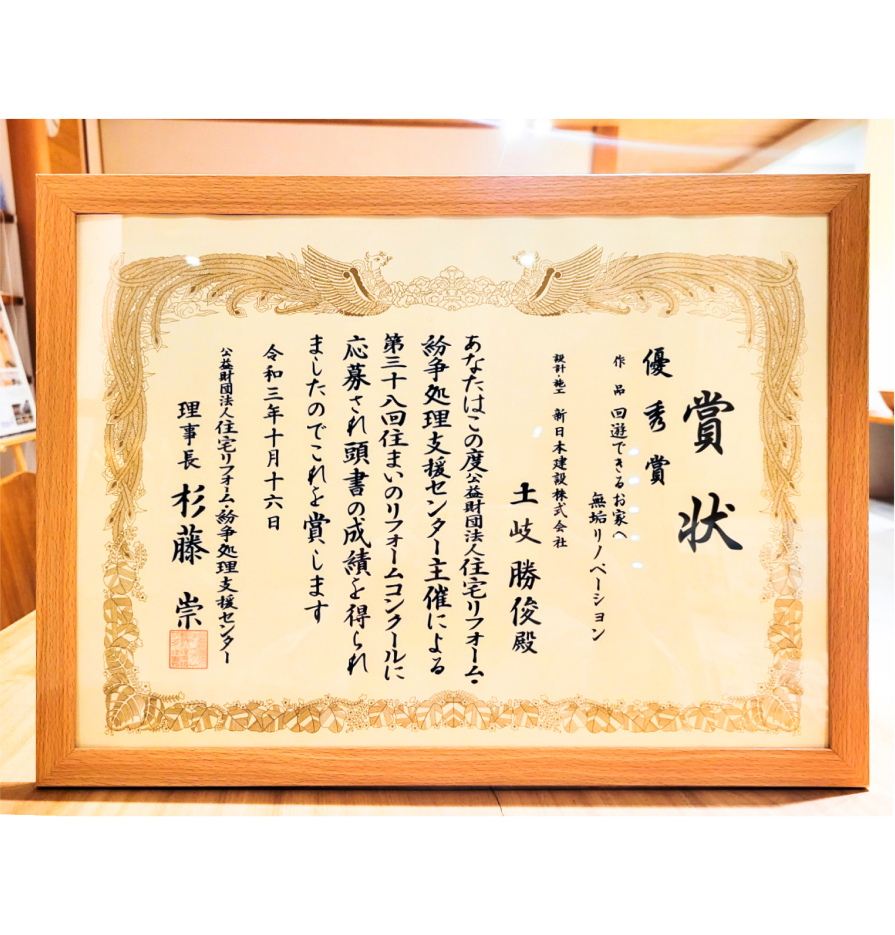 賞状
優秀賞
作品 回遊できるお家へ
無垢リノベーション
設計・施工 新日本建設株式会社
土岐勝俊殿
あなたはこの度公益財団法人住宅リフォーム・
紛争処理支援センター主催による
第三十八回住まいのリフォームコンクールに
応募され頭書の成績を得られ
ましたのでこれを賞します
令和三年十月十六日
公益財団法人住宅リフォーム・紛争処理支援センター
理事長 杉藤崇